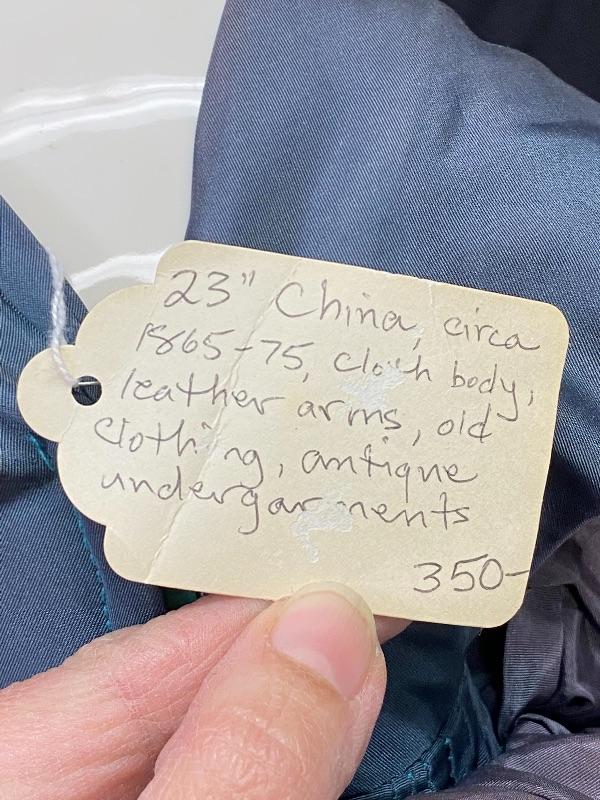 23" China, circa
1865-75, cloth body,
leather arms, old
clothing, antique
undergarments
350-